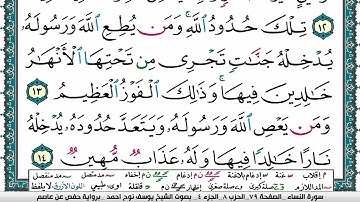 ١٢ تِلْكَ حُدُودُ ٱللَّهِ ۚ وَمَن يُطِعِ ٱللَّهَ وَرَسُولَهُۥ
يُدْخِلْهُ جَنَّـٰتٍ تَجْرِى مِن تَحْتِهَا ٱلْأَنْهَـٰرُ
خَـٰلِدِينَ فِيهَا ۚ وَذَٰلِكَ ٱلْفَوْزُ ٱلْعَظِيمُ ١٣
وَمَن يَعْصِ ٱللَّهَ وَرَسُولَهُۥ وَيَتَعَدَّ حُدُودَهُۥ يُدْخِلْهُ
نَارًا خَـٰلِدًا فِيهَا وَلَهُۥ عَذَابٌ مُّهِينٌ ١٤
سورة النساء الصفحة ٧٩ الحزب ٨ الجزء ٤ بصوت الشيخ يوسف نوح احمد برواية حفص عن عاصم